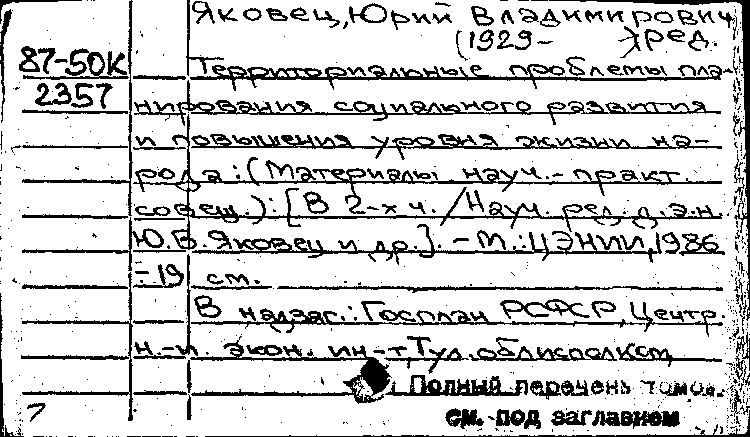 Яковец, Юрий Владимирович
(1929-        ) ред.
87-50К Территориальные проблемы пла-
2357 нирования социального развития
и повышения уровня жизни на-
рода: (Материалы науч.-практ.
совещ.): [В 2-х ч. / Науч. ред. д.э.н.
Ю.В. Яковец и др.]. - М.: ЦЭНИИ, 1986
- 19 см.
В надзаг.: Госплан РСФСР, Центр.
н.-и. экон. ин-т, Тул. облисполком
Полный перечень томов
см. под заглавием
7